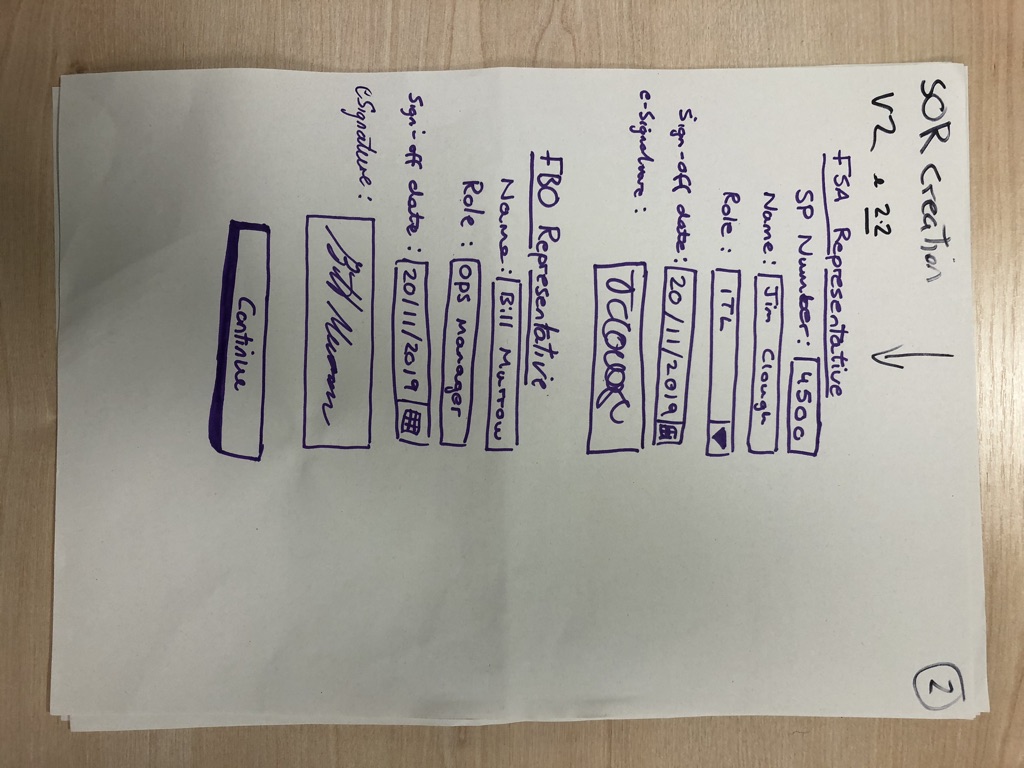 SOR Creation
2
V2 & 2.2
FSA Representative
SP Number: 4500
Name: Jim Clough
Role: ITL
Sign-off date: 20/11/2019
e-Signature:
FBO Representative
Name: Bill Murrow
Role: OPS Manager
Sign-off date: 20/11/2019
eSignature:
Continue